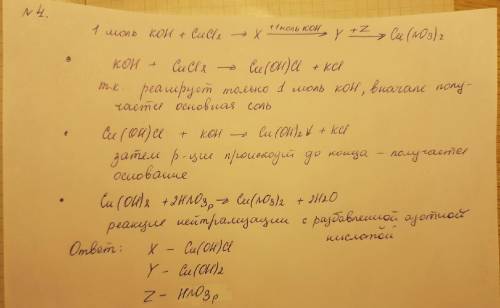 №4.
1 моль KOH + CuCl₂ → X +1моль KOH → Y +Z → Cu(NO₃)₂
• KOH + CuCl₂ → Cu(OH)Cl + KCl
т.к. реагирует только 1 моль KOH, вначале полу-
чается основная соль
• Cu(OH)Cl + KOH → Cu(OH)₂↓ + KCl
затем р-ция происходит до конца – получается
основание
• Cu(OH)₂ + 2HNO₃р → Cu(NO₃)₂ + 2H₂O
реакция нейтрализации с разбавленной азотной
кислотой
Ответ: X – Cu(OH)Cl
Y – Cu(OH)₂
Z – HNO₃р